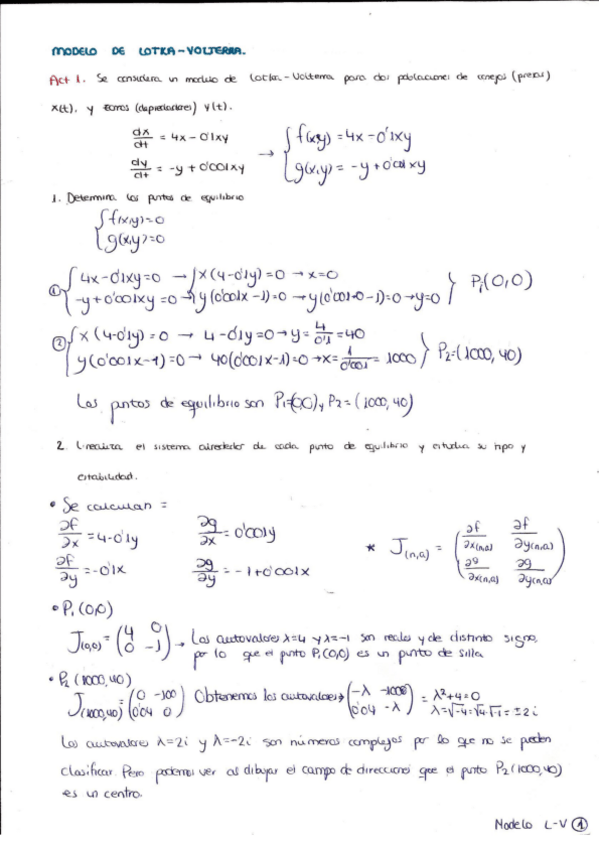 MODELO DE LOTKA-VOLTERRA.
Act 1. Se considera un modelo de Lotka-Volterra para dos poblaciones de conejos (presas)
x(t), y zorros (depredadores) y(t).
dx/dt = 4x - 0'1xy → { f(x,y) = 4x - 0'1xy
dy/dt = -y + 0'001xy { g(x,y) = -y + 0'001xy
1. Determina los puntos de equilibrio
{ f(x,y)=0
{ g(x,y)=0
① { 4x-0'1xy=0 → { x(4-0'1y)=0 → x=0 } P₁(0,0)
{ -y+0'001xy=0 → { y(0'001x-1)=0 → y(0'001·0-1)=0 → y=0 }
② { x(4-0'1y)=0 → 4-0'1y=0 → y=4/0'1=40 } P₂=(1000,40)
{ y(0'001x-1)=0 → 40(0'001x-1)=0 → x=1/0'001=1000 }
Los puntos de equilibrio son P₁=(0,0) y P₂=(1000,40)
2. Linealiza el sistema alrededor de cada punto de equilibrio y estudia su tipo y
estabilidad.
• Se calculan =
∂f/∂x = 4-0'1y ∂g/∂x = 0'001y * J(n,a) = ( ∂f/∂x(n,a) ∂f/∂y(n,a) )
∂f/∂y = -0'1x ∂g/∂y = -1+0'001x ( ∂g/∂x(n,a) ∂g/∂y(n,a) )
• P₁(0,0)
J(0,0) = (4 0 / 0 -1) → Los autovalores λ=4 y λ=-1 son reales y de distinto signo,
por lo que el punto P₁(0,0) es un punto de silla
• P₂(1000,40)
J(1000,40) = (0 -100 / 0'04 0) Obtenemos los autovalores → (-λ -1000 / 0'04 -λ) = λ²+4=0
λ=√-4=√4·√-1=±2i
Los autovalores λ=2i y λ=-2i son números complejos por lo que no se pueden
clasificar. Pero podemos ver al dibujar el campo de direcciones que el punto P₂(1000,40)
es un centro.
Modelo L-V ①